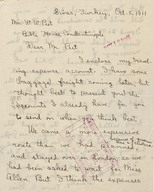 Sivas, Turkey, Oct. 5, 1911
Mr. W. W. Peet
Bible House Constantinople
Dear Mr. Peet
I enclose my travel-
ing expense account. I have some
baggage freight coming later, but
thought best to present you the
accounts I already have, for you
to send in when you think best.
We came a more expensive
route than we had
and stayed over in London as we
had been asked to wait for Miss
Allen. But I think the expenses